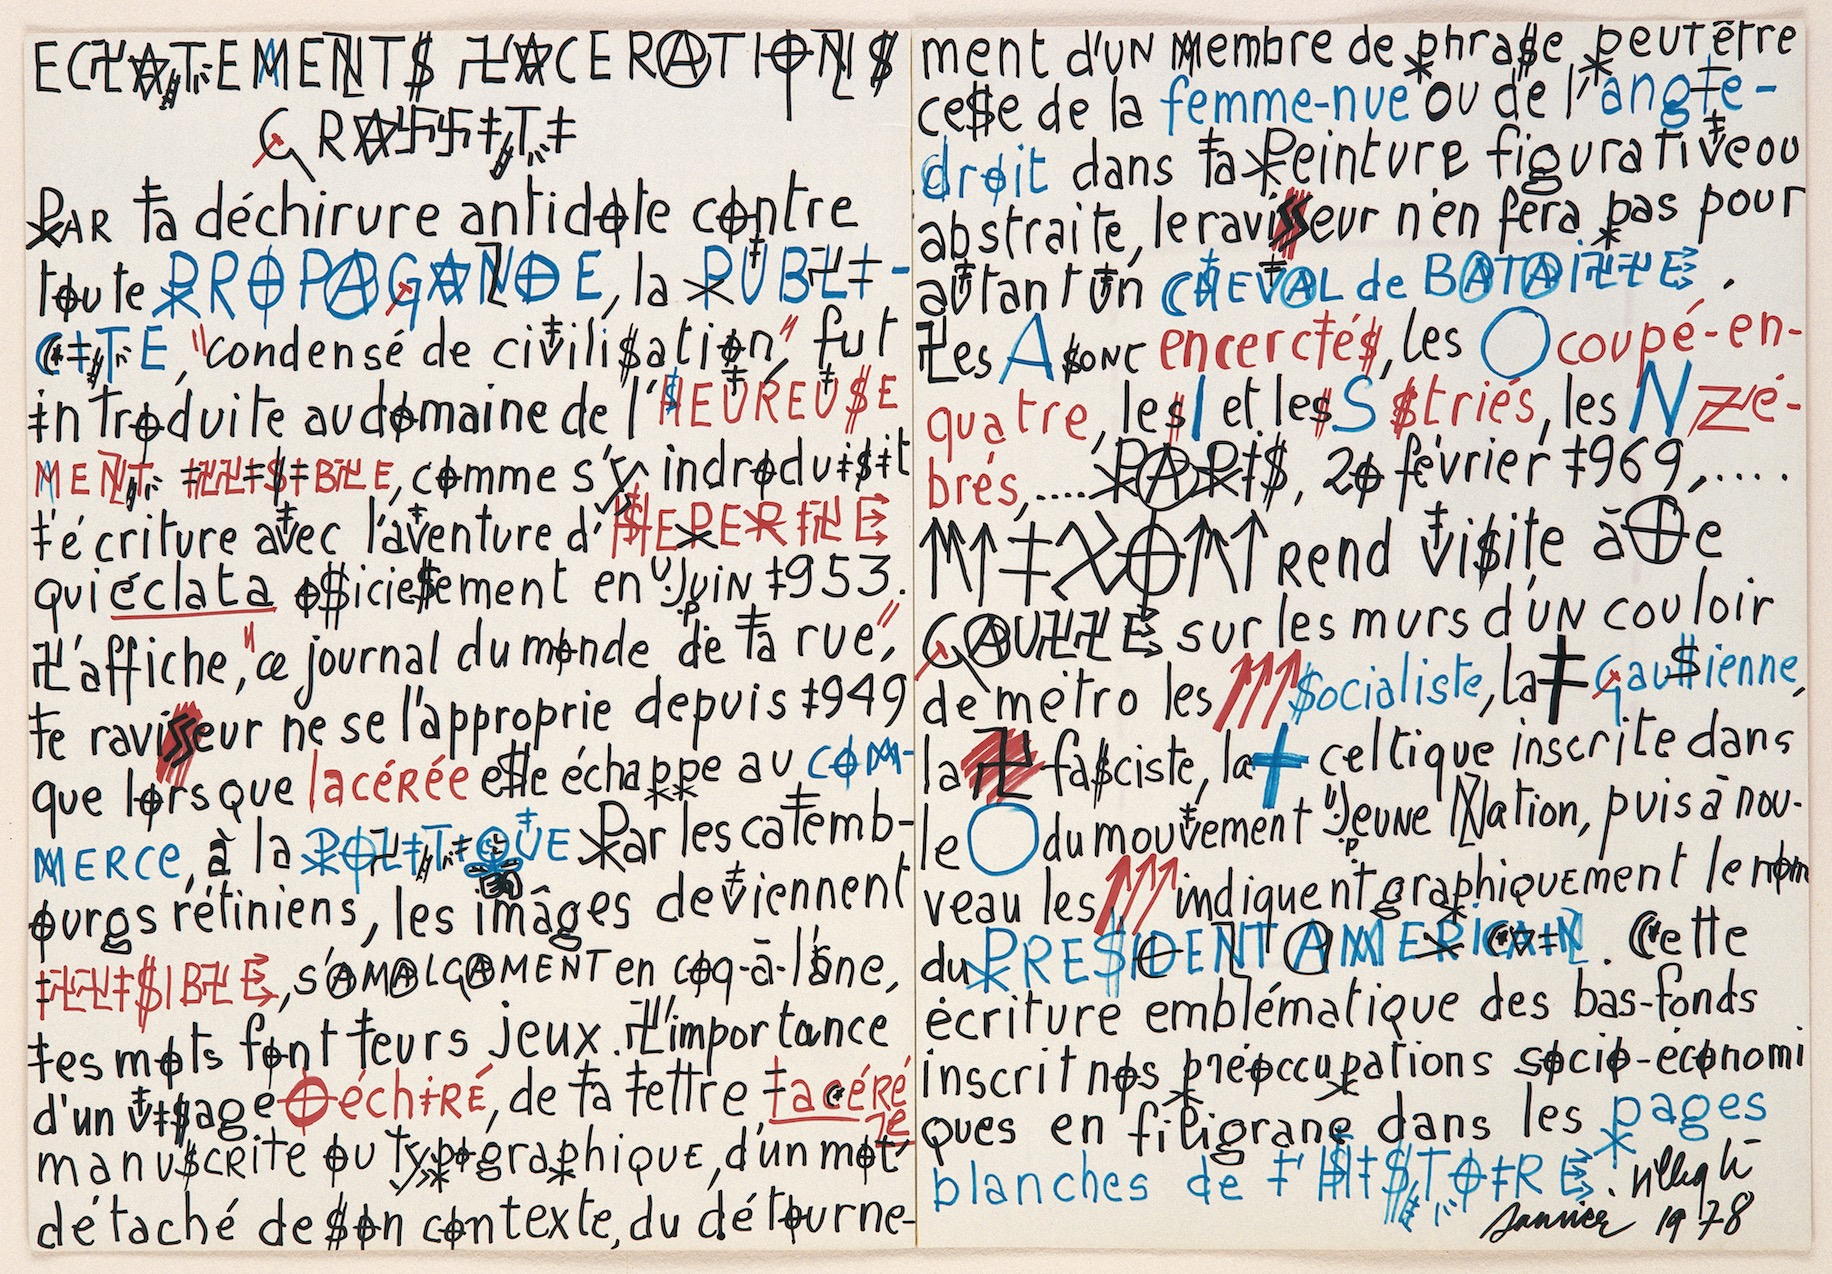 ECLATEMENTS LACERATIONS
GRAFFITI
PAR la déchirure antidote contre
toute PROPAGANDE, la PUBLI-
CITE, "condensé de civilisation", fut
introduite au domaine de l'HEUREUSE-
MENT ILLISIBLE, comme s'y indroduisit
l'écriture avec l'aventure d'HEPERILE
qui éclata officiellement en Juin 1953.
L'affiche, "ce journal du monde de la rue",
le ravisseur ne se l'approprie depuis 1949
que lorsque lacérée elle échappe au COM-
MERCE, à la POLITIQUE Par les calemb-
ourgs rétiniens, les images deviennent
ILLISIBLES, s'AMALGAMENT en coq-à-l'âne,
les mots font leurs jeux. L'importance
d'un visage déchiRÉ, de la lettre lacéré
manuscrite ou typographique, d'un mot
détaché de son contexte, du détourne-
ment d'un membre de phrase peut être
celle de la femme-nue ou de l'angle-
droit dans la Peinture figurative ou
abstraite, le ravisseur n'en fera pas pour
autant un CHEVAL de BATAILLES.
Les A sont encerclés, les O coupé-en-
quatre, les I et les S striés, les N zé-
brés, .... PARIS, 20 février 1969, .....
NIXON rend visite à De
GAULLE sur les murs d'un couloir
de métro les ↑↑↑ socialiste, la ‡ Gaullienne,
la 卐 fasciste, la + celtique inscrite dans
le O du mouvement Jeune Nation, puis à nou-
veau les ↑↑↑ indiquent graphiquement le nom
du PRESIDENT AMERICAIN. Cette
écriture emblématique des bas-fonds
inscrit nos préoccupations socio-économi
ques en filigrane dans les pages
blanches de l'HISTOIRE. Villeglé
Janvier 1978